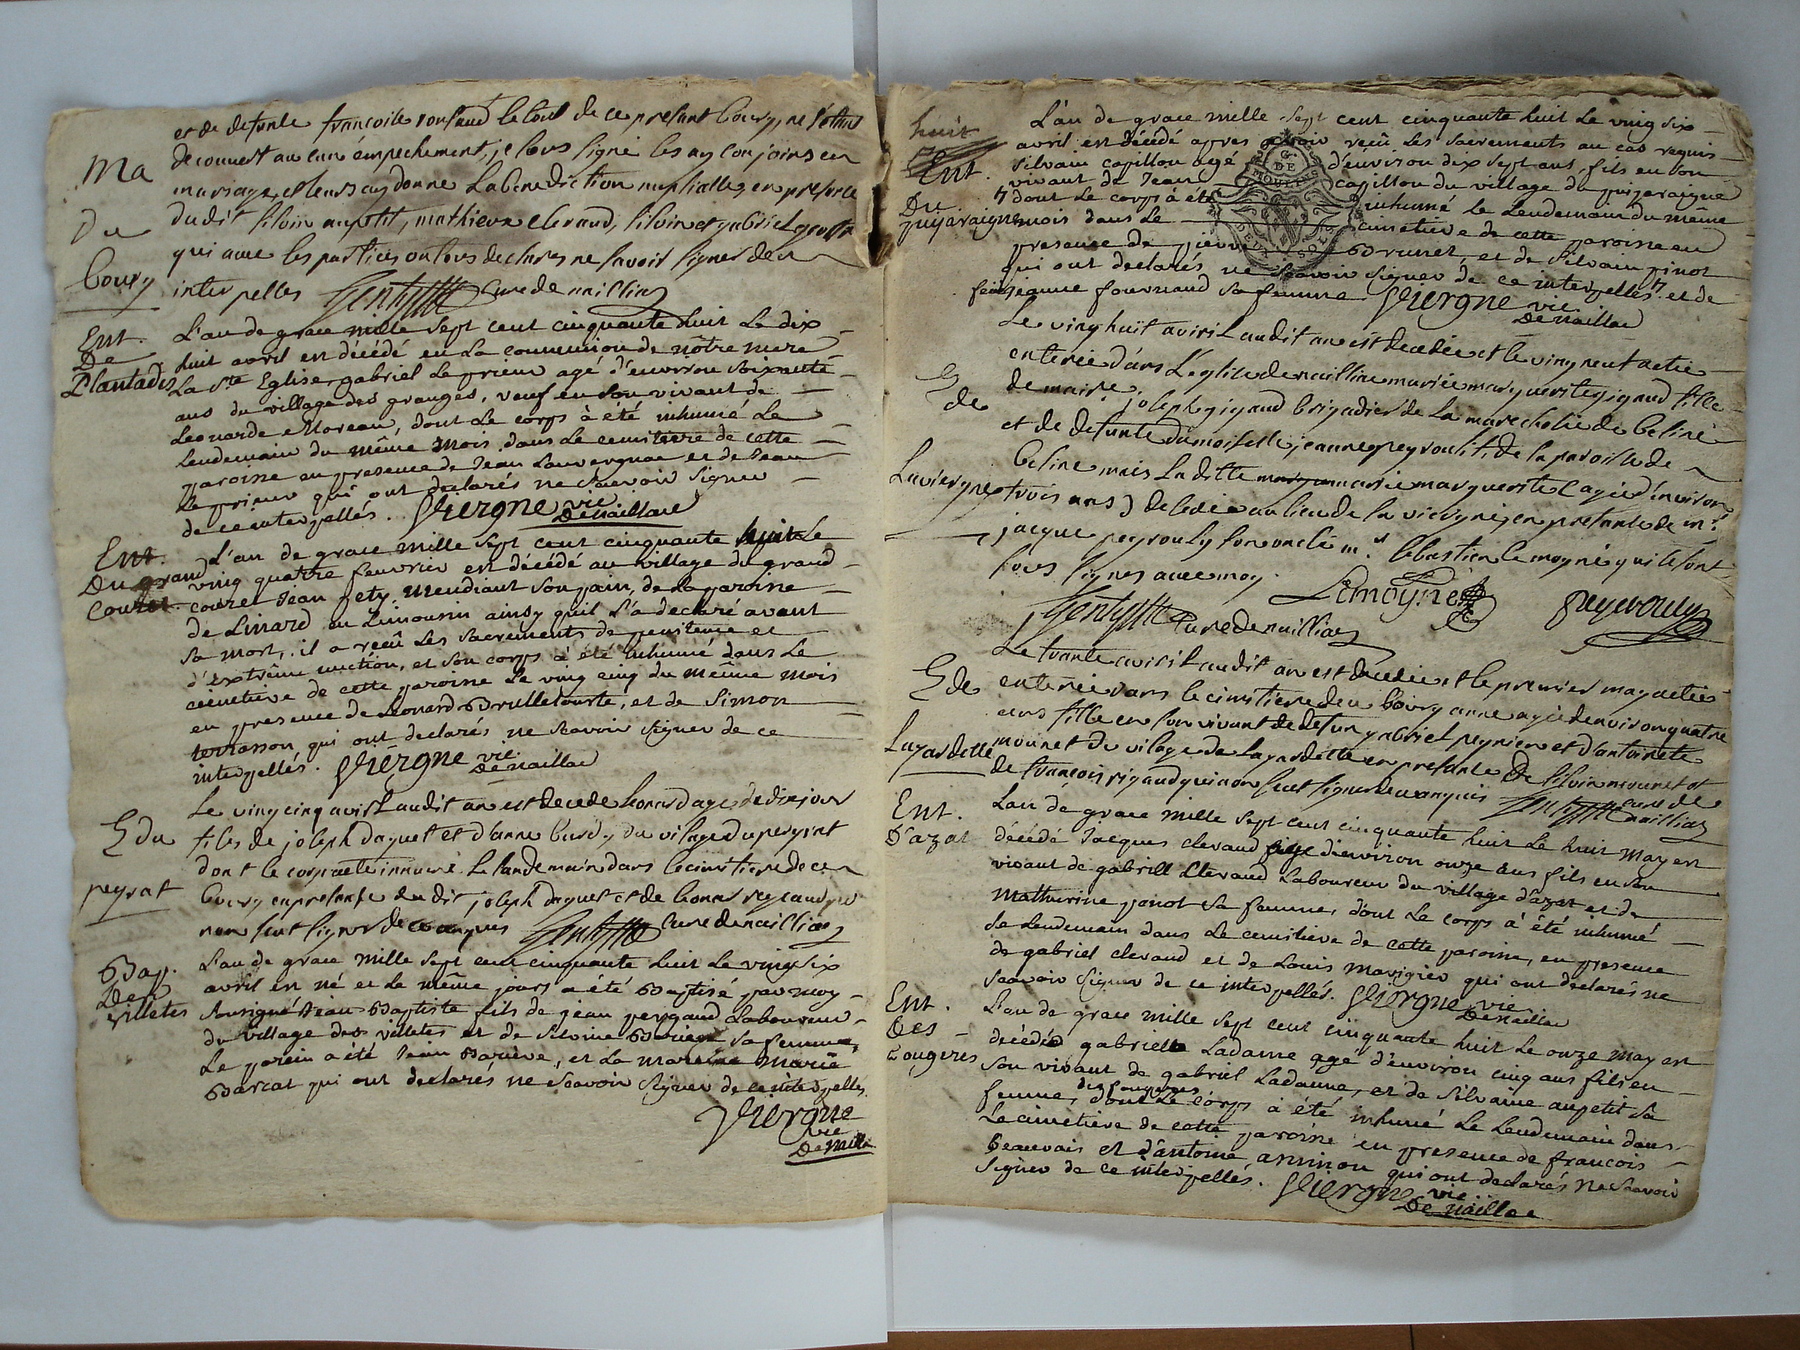 et de defunte francoise ronfaud le tout de ce present bourg, ne s'etant
decouvert aucun empechement, je
mariage, et leurs ay donné La benediction nuptialle, en presence
dudit silvin aupetit, mathieu clevaud, silvin et gabriel
qui avec les parties ont tous declarés ne savoir signer de
interpellés Gentil curé de naillia
Ma
Du
bourg
Ent.
De
Plantadis
L'an de grace mille sept cent cinquante huit Le dix
huit avril est décédé en La communion de nôtre mere
La ste Eglise gabriel Leprieur agé d'environ soixante
ans du village des granges, veuf en son vivant de
Leonarde Moreau, dont Le corps à été inhumé Le
Lendemain du même mois dans Le cemitiere de cette
paroisse en presence de Jean Lauvergnac et de Jean
Leprieur qui ont declarés ne scavoir signer
de ce interpellés. Vergne vic
De naillac
Ent.
Du grand
Couret
L'an de grace mille sept cent cinquante huit Le
ving quatre feuvrier est décédé au village du grand
couret Jean pety mendiant son pain, de La paroisse
de Linard en Limousin ainsy quil L'a declaré avant
sa mort, il a reçû Les sacrements de penitence et
d'extrême onction, et son corps à été inhumé dans Le
cimetiere de cette paroisse Le ving cinq du même mois
en presence de Leonard Brulletourte, et de Simon
terrasson, qui ont declarés ne scavoir signer de ce
interpellés. Vergne vic
De naillac
E du
peyrat
Le vingt cinq avril audit an est decede leonard agé de dix jours
fils de joseph daguet et d'anne burdy du vilage du peyrat
dont le corps a ete innumé le landemain dans le cimistiere de ce
bourg en presence du dit joseph daguet et de leonar
non seut signer de ce anquis Gentil curé de naillia
Bap.
Des
villetes
L'an de grace mille sept cent cinquante huit Le ving six
avril est né et Le même jours a été Baptisé par moy
sousigné Jean Baptiste fils de jean peygaud Laboureur
du village des villetes et de silvine Bariere sa femme,
Le parein a été Jean Bariere, et La mareine Marie
Barcat qui ont declarés ne scavoir signer de ce interpellés
Vergne
vic
De naillac
huit
Ent.
Du
puyaraigne
L'an de grace mille sept cent cinquante huit Le ving six
avril est décédé apres avoir reçû Les sacrements au cas requis
silvain capillou agé d'environ dix sept ans, fils en son
vivant de Jean capillou du village du puyaraigne
dont Le corps à été inhumé le Lendemain du même
mois dans Le cimetiere de cette paroisse en
presence de pierre Brunet, et de Silvain pinot
qui ont declarés ne scavoir signer de ce interpellés. et de
feue jeanne fournaud sa femme. Vergne vic
De naillac
G. DE MOULINS
DEUX SOLS
E
de
Lavievgne
Le ving huit avril audit an est decedée et le ving neuf a etée
enterée dans L'eglise de naillia mariée marguerite gigaud fille
de maitre joseph gigaud brigadier de La marechosée de beline
et de defunte damoiselle jeanne peyroulit, de la paroisse de
beline mais La ditte marie marguerite (agée d'environ
trois ans) decedée au lieu de la vievgne, en presance de mr.
jacque peyrouly son oncle mr. sebastien le moyne qui se sont
sous signes avec moy.
Lemoyne
peyrouly
Gentil curé de naillia
E de
Lagardette
Le trante avril audit an est decedée et le premier may a etée
enterée dans le cimistiere du bourg anne agée d'environ quatre
ans fille en son vivant de defun gabriel peynier et d'antoinete
mounet du vilage de Lagardette en presante de silvin mounet et
de francois rigaud qui non seut signer de ce anquis Gentil curé de
naillia
Ent.
D'azat
L'an de grace mille sept cent cinquante huit Le huit may est
décédé Jacques clevaud agé d'environ onze ans fils en son
vivant de gabriell Clevaud Laboureur du village d'azat et de
Mathurine janot sa femme, dont Le corps à été inhumé
Le Lendemain dans Le cemitiere de cette paroisse, en presence
de gabriel clevaud et de Louis Marigier qui ont declarés ne
scavoir signer de ce interpellés. Vergne vic
De naillac
Ent.
Des
fougeres
L'an de grace mille sept cent cinquante huit Le onze may est
décédé gabrielle Ladame agé d'environ cinq ans fils en
son vivant de gabriel Ladame, et de silvaine aupetit sa
des fougeres
femme, dont Le corps à été inhumé Le Lendemain dans
Le cimetiere de cette paroisse en presence de francois
Beauvais et d'antoine aninon qui ont declarés ne scavoir
signer de ce interpellés. Vergne vic
De naillac